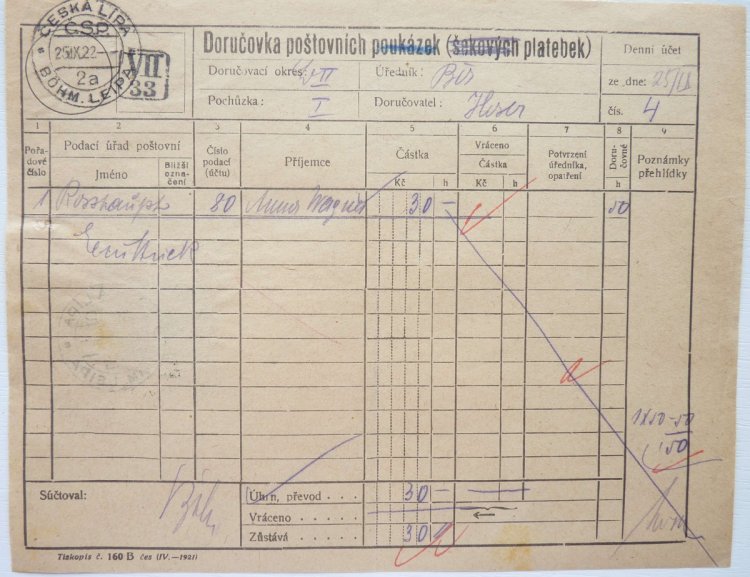 ČESKÁ LÍPA
Č.S.P.
25.IX.22
2a
BÖHM. LEIPA
VII
33
Doručovka poštovních poukázek (šekových platebek)
Denní účet
Doručovací okres: VII Úředník:
ze dne: 25/IX
Pochůzka: I Doručovatel:
čís. 4
1 2 3 4 5 6 7 8 9
Pořadové číslo
Podací úřad poštovní
Jméno
Bližší označení
Číslo podací (účtu)
Příjemce
Částka
Kč h
Vráceno
Částka
Kč h
Potvrzení úředníka, opatření
Doručovné
h
Poznámky přehlídky
1 Rosshaupt 80 Anna Wagner 30 — 50
1x50 - 50
50
Súčtoval:
Úhrn, převod . . . . 30 —
Vráceno . . . . .
Zůstává . . . . 30
Tiskopis č. 160 B čes (IV.—1921)